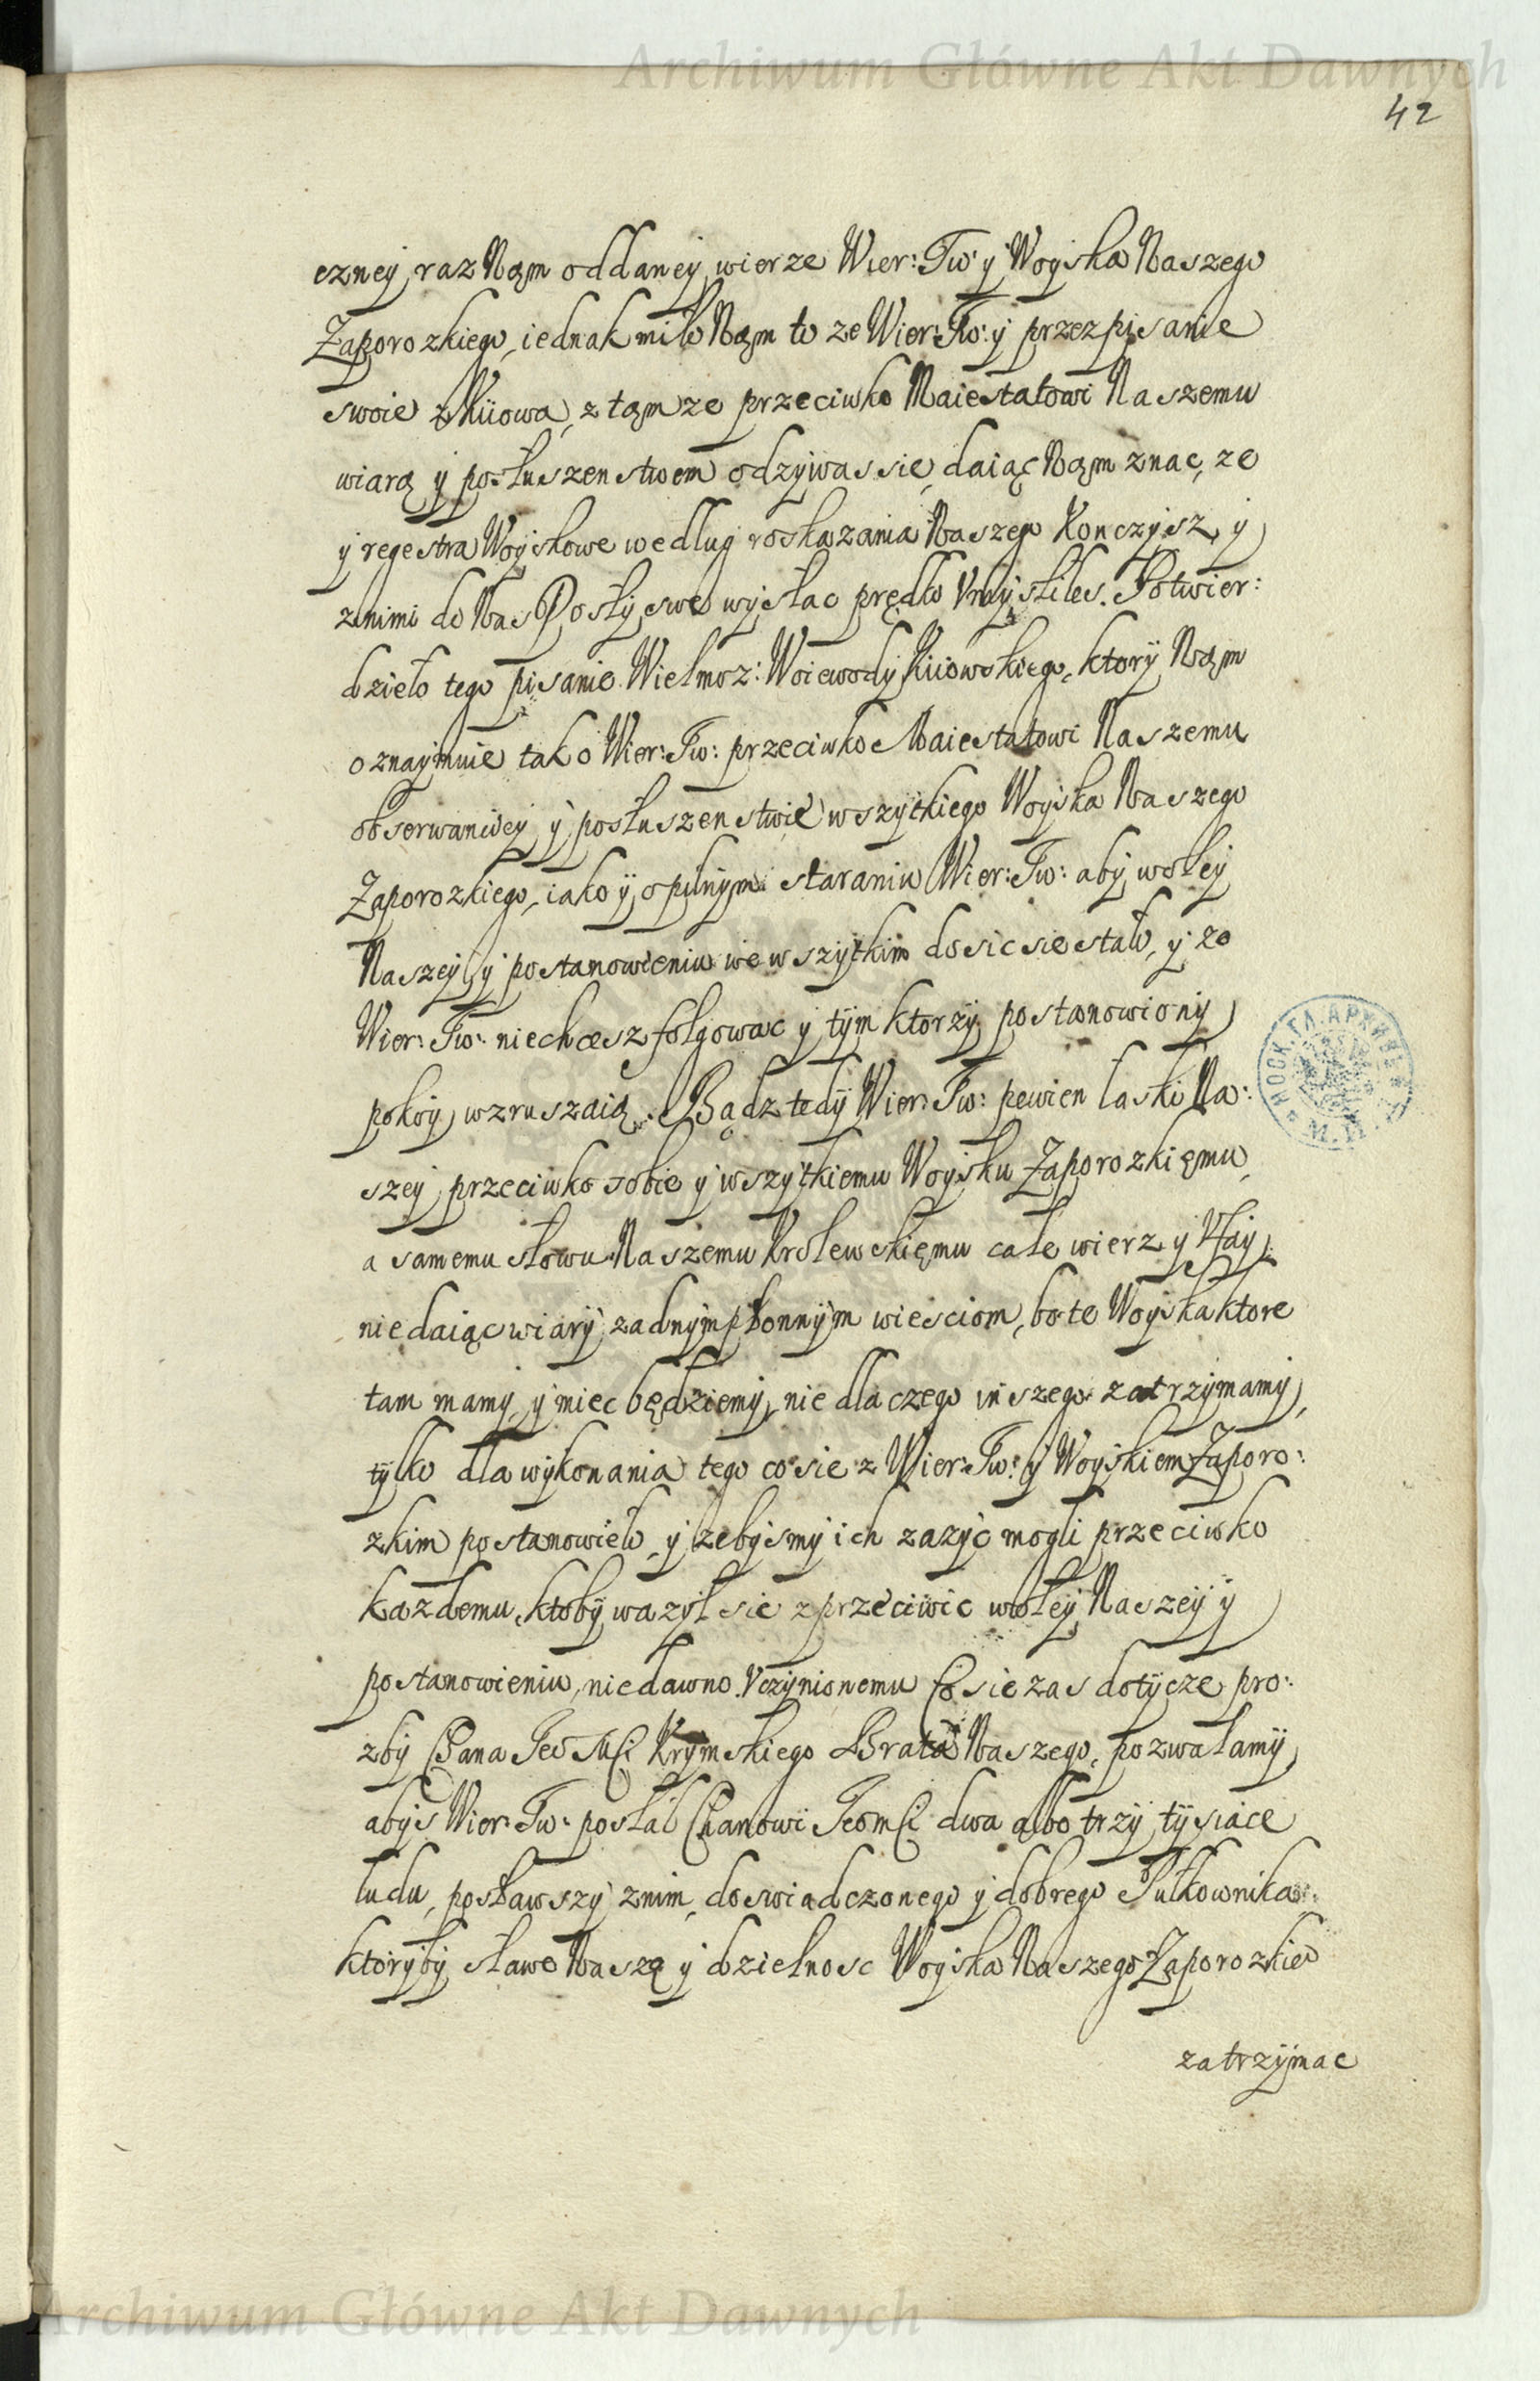 Archiwum Główne Akt Dawnych
42
czney raz Nąm oddaney wierze Wier: Tw: y Woyska Naszego
Zaporozkiego, iednak miło Nąm to ze Wier: Tw: y przez pisanie
swoie z Kiiowa, z tąmze przeciwko Maiestatowi Naszemu
wiarą y posłuszenstwem odzywas sie, daiąc Nąm znac, ze
y regestra Woyskowe według roskazania Naszego Konczysz, y
z nimi do Nas Posły swe wysłac prędko Vmysliłes. Potwier:
dzieło tego pisanie Wielmoz: Woiewody Kiiowskiego, ktory Nąm
oznaymuie tak o Wier: Tw: przeciwko Maiestatowi Naszemu
obserwanciey y posłuszenstwie wszytkiego Woyska Naszego
Zaporozkiego, iako y o pilnym staraniu Wier: Tw: aby woley
Naszey y postanowieniu we wszytkim dosic sie stało, y ze
Wier: Tw: niechcesz folgowac y tym ktorzy postanowiony
pokoy wzruszaią. Bądz tedy Wier: Tw: pewien łaski Na:
szey przeciwko sobie y wszytkiemu Woysku Zaporozkięmu,
a samemu słowu Naszemu Krolewskięmu cale wierz y Vfay,
nie daiąc wiary zadnym płonnym wiesciom, bo te Woyska ktore
tam mamy y miec będziemy, nie dla czego inszego zatrzymamy,
tylko dla wykonania tego co sie z Wier: Tw: y Woyskiem Zaporo:
zkim postanowieło, y zebysmy ich zazyc mogli przeciwko
kazdemu, ktoby wazył sie zprzeciwic woley Naszey y
postanowieniu, niedawno Vczynionemu Co sie zas dotycze pro:
zby Chana Jeo Mci Krymskiego Brata Naszego, pozwalamy,
abys Wier: Tw: posłał Chanowi Jeomci dwa albo trzy tysiace
ludu, posławszy znim, doswiadczonego y dobrego Pułkownika,
ktoryby sławe Naszą y dzielnosc Woyska Naszego Zaporozkieo
zatrzymac
Archiwum Główne Akt Dawnych